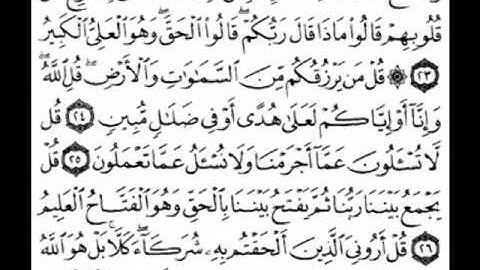 قُلُوبِهِمْ قَالُوا۟ مَاذَا قَالَ رَبُّكُمْ ۖ قَالُوا۟ ٱلْحَقَّ ۖ وَهُوَ ٱلْعَلِىُّ ٱلْكَبِيرُ
٢٣ ۞ قُلْ مَن يَرْزُقُكُم مِّنَ ٱلسَّمَٰوَٰتِ وَٱلْأَرْضِ ۖ قُلِ ٱللَّهُ ۖ
وَإِنَّآ أَوْ إِيَّاكُمْ لَعَلَىٰ هُدًى أَوْ فِى ضَلَٰلٍ مُّبِينٍ ٢٤ قُل
لَّا تُسْـَٔلُونَ عَمَّآ أَجْرَمْنَا وَلَا نُسْـَٔلُ عَمَّا تَعْمَلُونَ ٢٥ قُلْ
يَجْمَعُ بَيْنَنَا رَبُّنَا ثُمَّ يَفْتَحُ بَيْنَنَا بِٱلْحَقِّ وَهُوَ ٱلْفَتَّاحُ ٱلْعَلِيمُ
٢٦ قُلْ أَرُونِىَ ٱلَّذِينَ أَلْحَقْتُم بِهِۦ شُرَكَآءَ ۖ كَلَّا ۚ بَلْ هُوَ ٱللَّهُ